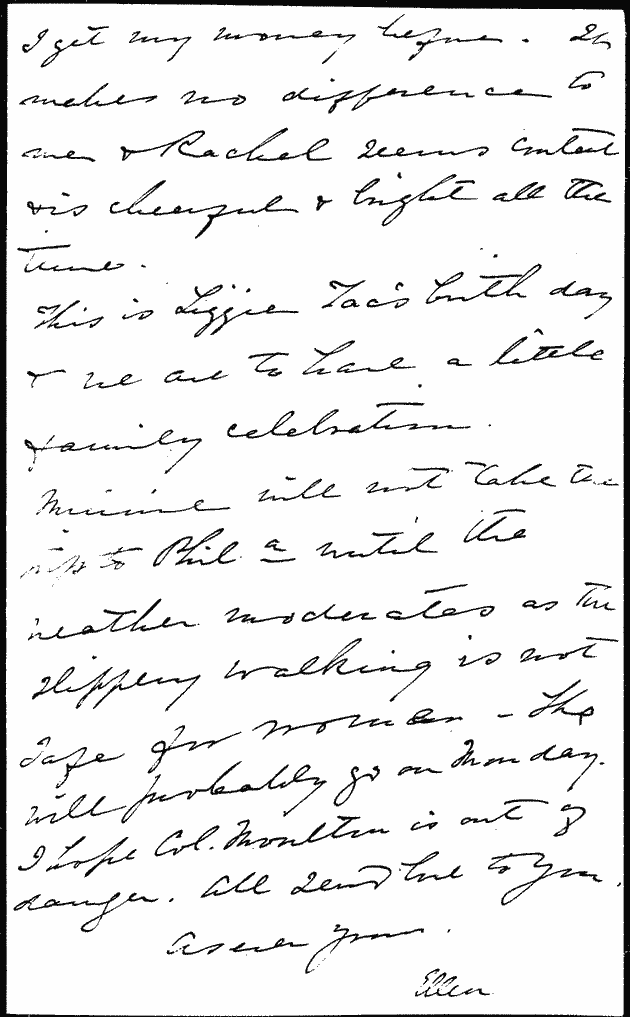 I get my money before. It
makes no difference to
me & Rachel seems content
& is cheerful & bright all the
time.
This is Lizzie Tac's birth day
& we are to have a little
family celebration.
Minnie will not take the
trip to Phil a until the
weather moderates as the
slippery walking is not
safe for women - She
will probably go on Monday.
I hope Col. Moulton is out of
danger. All send love to you.
As ever yours.
Ellen